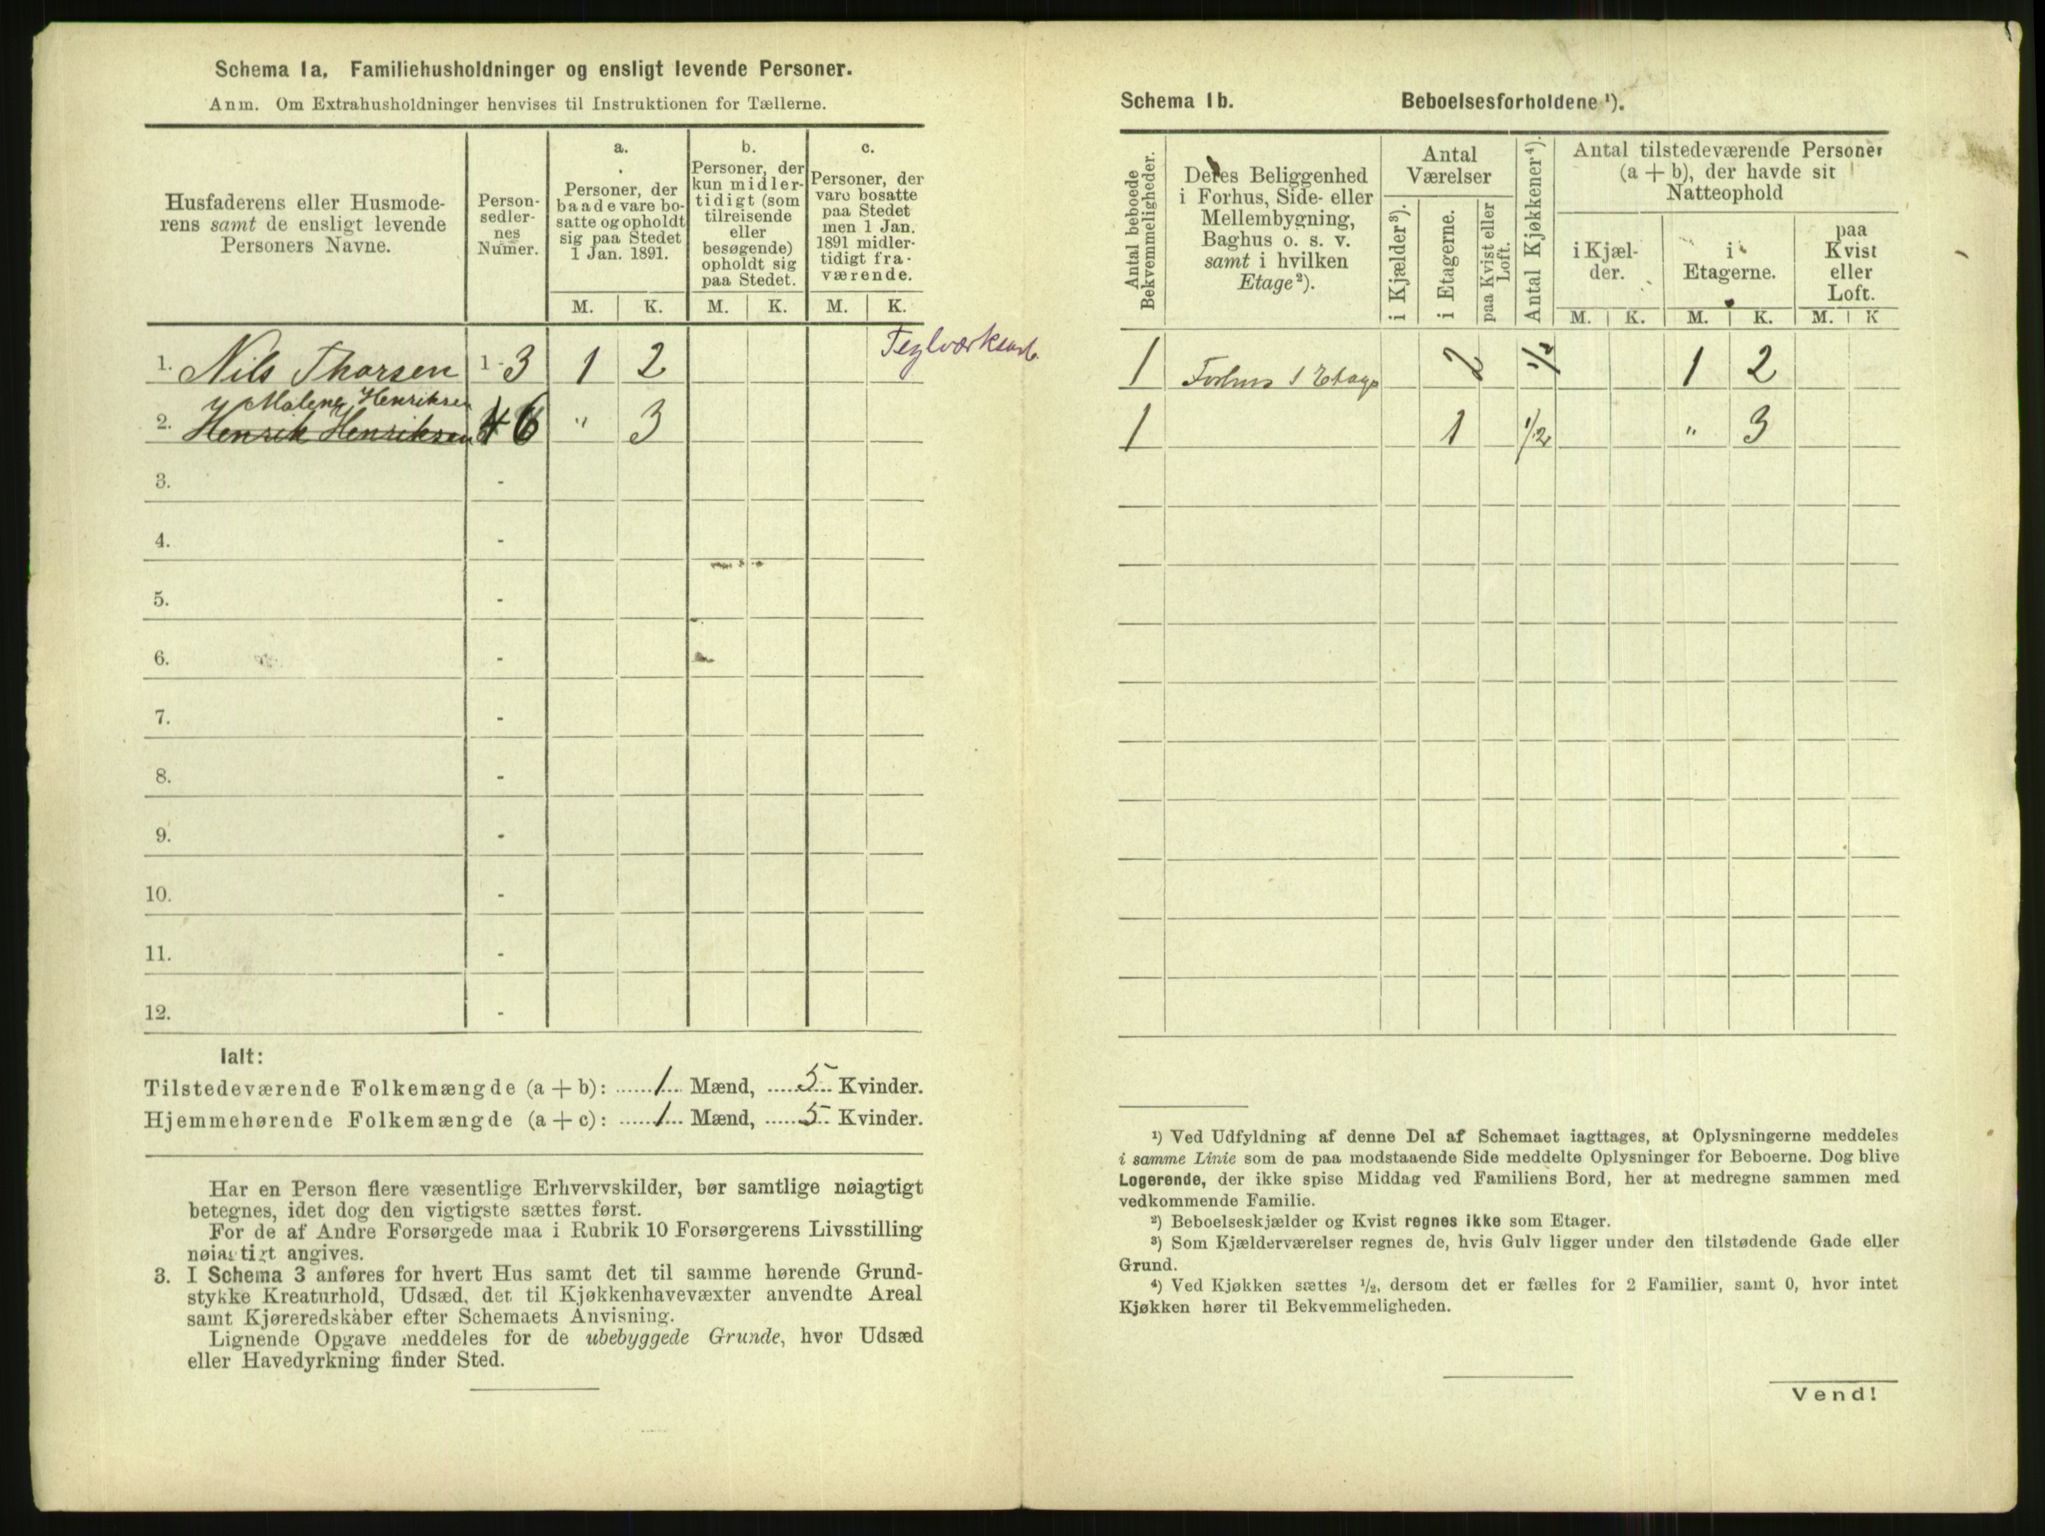 Schema 1a. Familiehusholdninger og ensligt levende Personer.
Anm. Om Extrahusholdninger henvises til Instruktionen for Tællerne.
Husfaderens eller Husmode-
rens samt de ensligt levende
Personers Navne.
Person-
sedler-
nes
Numer.
a.
Personer, der
baade vare bo-
satte og opholdt
sig paa Stedet
1 Jan. 1891.
b.
Personer, der
kun midler-
tidigt (som
tilreisende
eller
besøgende)
opholdt sig
paa Stedet.
c.
Personer, der
vare bosatte
paa Stedet
men 1 Jan.
1891 midler-
tidigt fra-
værende.
M. K. M. K. M. K.
1. Nils Thorsen 1 - 3 1 2 Teglværksarb.
Malene Henriksen
2. Henrik Henriksen 4 6 " 3
3. -
4. -
5. -
6. -
7. -
8. -
9. -
10. -
11. -
12. -
Ialt:
Tilstedeværende Folkemængde (a + b): 1 Mænd, 5 Kvinder.
Hjemmehørende Folkemængde (a + c): 1 Mænd, 5 Kvinder.
Har en Person flere væsentlige Erhvervskilder, bør samtlige nøiagtigt
betegnes, idet dog den vigtigste sættes først.
For de af Andre Forsørgede maa i Rubrik 10 Forsørgerens Livsstilling
nøiagtigt angives.
3. I Schema 3 anføres for hvert Hus samt det til samme hørende Grund-
stykke Kreaturhold, Udsæd, det til Kjøkkenhavevæxter anvendte Areal
samt Kjøreredskaber efter Schemaets Anvisning.
Lignende Opgave meddeles for de ubebyggede Grunde, hvor Udsæd
eller Havedyrkning finder Sted.
Schema 1b. Beboelsesforholdene ¹).
Antal beboede
Bekvemmeligheder.
Deres Beliggenhed
i Forhus, Side- eller
Mellembygning,
Baghus o. s. v.
samt i hvilken
Etage ²).
Antal
Værelser
i Kjælder ³).
i Etagerne.
paa Kvist eller
Loft.
Antal Kjøkkener ⁴).
Antal tilstedeværende Personer
(a + b), der havde sit
Natteophold
i Kjæl-
der.
i
Etagerne.
paa
Kvist
eller
Loft.
M. K. M. K. M. K
1 Forhus 1 Etage 2 1/2 1 2
1 1 1/2 " 3
¹) Ved Udfyldning af denne Del af Schemaet iagttages, at Oplysningerne meddeles
i samme Linie som de paa modstaaende Side meddelte Oplysninger for Beboerne. Dog blive
Logerende, der ikke spise Middag ved Familiens Bord, her at medregne sammen med
vedkommende Familie.
²) Beboelseskjælder og Kvist regnes ikke som Etager.
³) Som Kjælderværelser regnes de, hvis Gulv ligger under den tilstødende Gade eller
Grund.
⁴) Ved Kjøkken sættes ½, dersom det er fælles for 2 Familier, samt 0, hvor intet
Kjøkken hører til Bekvemmeligheden.
Vend!